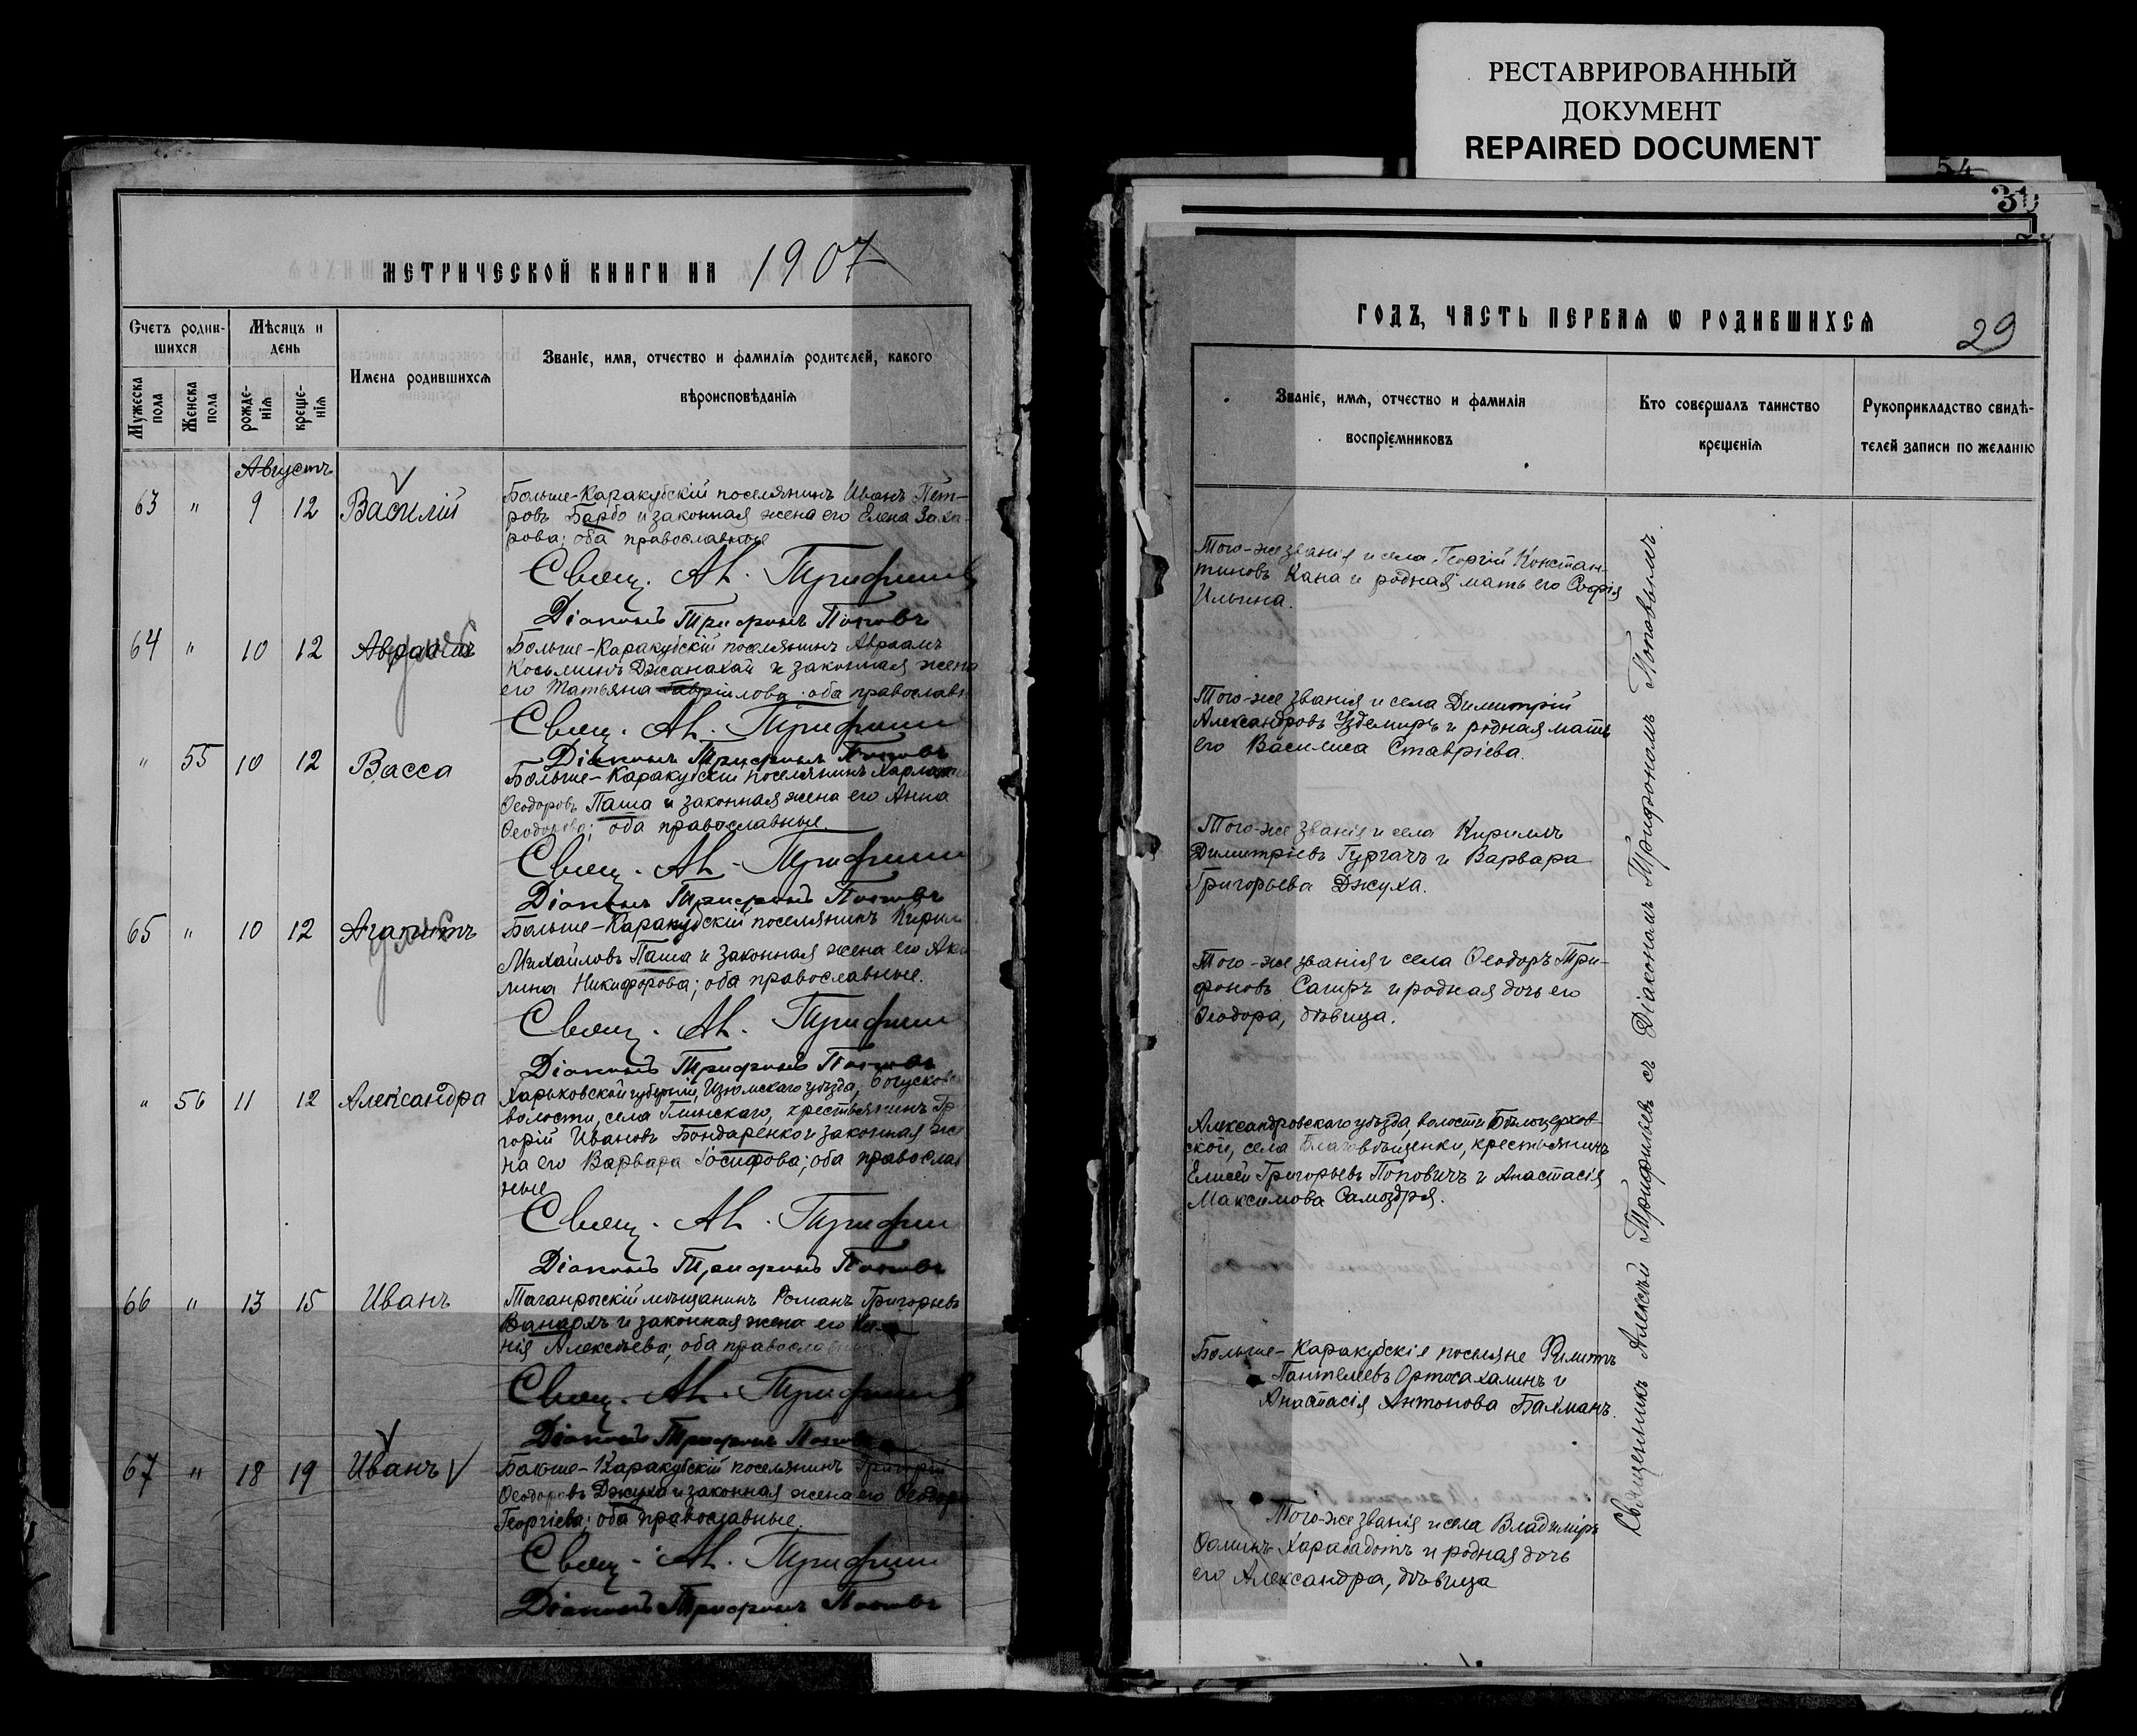 РЕСТАВРИРОВАННЫЙ
ДОКУМЕНТ
REPAIRED DOCUMENT
МЕТРИЧЕСКОЙ КНИГИ НА 1907
Счетъ родив-
шихся
Мѣсяцъ и
день
Мужеска
пола
Женска
пола
рожде-
нія
креще-
нія
Имена родившихся
Званіе, имя, отчество и фамилія родителей, какого
вѣроисповѣданія
Августъ
63 " 9 12 Василій
Больше-Каракубскій поселянинъ Иванъ Пет-
ровъ Барбо и законная жена его Елена Заха-
рова; оба православные
Свящ. Ал. Трифильевъ
Діаконъ Трифонъ Поповъ
64 " 10 12 Авраамъ
Больше-Каракубскій поселянинъ Авраамъ
Косьминъ Джанахай и законная жена
его Татьяна Гавріилова; оба православн
Свящ. Ал. Трифильевъ
Діаконъ Трифонъ Поповъ
" 55 10 12 Васса
Больше-Каракубскій поселянинъ Харлампій
Ѳеодоровъ Паша и законная жена его Анна
Ѳеодорова; оба православные.
Свящ. Ал. Трифильевъ
Діаконъ Трифонъ Поповъ
65 " 10 12 Агапитъ
Больше-Каракубскій поселянинъ Кирил
Михайловъ Паша и законная жена его Аку
лина Никифорова; оба православные.
Свящ. Ал. Трифильевъ
Діаконъ Трифонъ Поповъ
" 56 11 12 Александра
Харьковской губерніи, Изюмскаго уѣзда,
волости, села Глинскаго, крестьянинъ Гр
горій Ивановъ Бондаренко и законная же
на его Варвара Іосифова; оба православ
ные
Свящ. Ал. Трифильевъ
Діаконъ Трифонъ Поповъ
66 " 13 15 Иванъ
Таганрогскій мѣщанинъ Романъ Григорьевъ
и законная жена его
нія Алексѣева; оба православные
Свящ. Ал. Трифильевъ
Діаконъ Трифонъ Поповъ
67 " 18 19 Иванъ
Больше-Каракубскій поселянинъ Григорій
Ѳеодоровъ Джуха и законная жена его Ѳеодора
Георгіева; оба православные.
Свящ. Ал. Трифильевъ
Діаконъ Трифонъ Поповъ
ГОДЪ, ЧАСТЬ ПЕРВАЯ Ѡ РОДИВШИХСЯ
29
Званіе, имя, отчество и фамилія
воспріемниковъ
Кто совершалъ таинство
крещенія
Рукоприкладство свидѣ-
телей записи по желанію
Того-же званія и села Георгій Констан-
тиновъ Кана и родная мать его Софія
Ильина.
Того-же званія и села Димитрій
Александровъ Узdемиръ и родная мать
его Василиса Ставріева.
Того-же званія и села Кириллъ
Димитріевъ Гургачъ и Варвара
Григорьева Джуха.
Того-же званія и села Ѳеодоръ Три-
фоновъ Сагиръ и родная дочь его
Ѳеодора, дѣвица.
Александровскаго уѣзда, волости Бѣлоцерков-
ской, села Благовѣщенки, крестьянинъ
Елисей Григорьевъ Поповичъ и Анастасія
Максимова Самоздря.
Больше-Каракубскіе поселяне Филиппъ
Пантелеевъ Ортосахалинъ и
Анастасія Антонова Бахманъ.
Того-же званія и села Владиміръ
Ѳоминъ Харабадотъ и родная дочь
его Александра, дѣвица
Священникъ Алексѣй Трифильевъ съ Діакономъ Трифономъ Поповымъ